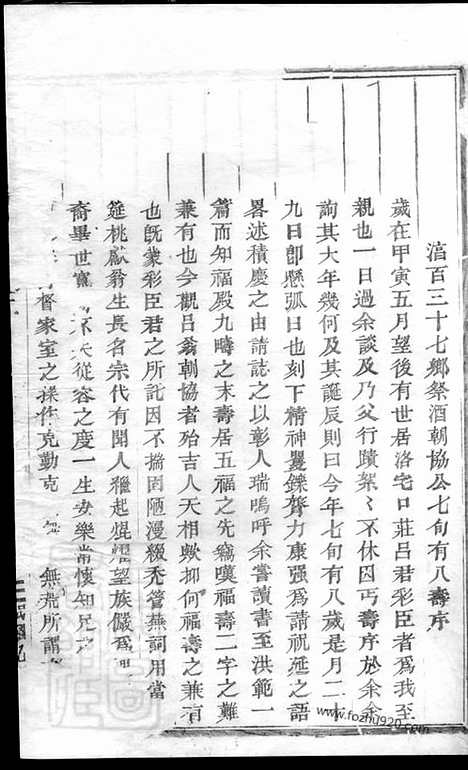 滈百三十七鄉祭酒朝協公七旬有八壽序
歲在甲寅五月望後有世居洛宅口莊呂君彩臣者爲我至
親也一日過余談及乃父行蹟絮〻不休因丐壽序於余余
詢其大年幾何及其誕辰則曰今年七旬有八歲是月二十
九日卽懸弧日也刻下精神矍鑠膂力康强爲請祝延之語
畧述積慶之由請誌之以彰人瑞嗚呼余嘗讀書至洪範一
篇而知福殿九疇之末壽居五福之先竊嘆福壽二字之難
兼有也今觀呂翁朝協者殆吉人天相歟抑何福壽之兼有
也旣蒙彩臣君之所託因不揣固陋漫綴禿管蕪詞用當
筵桃獻翁生長名宗代有聞人雅起焜燿望族儼爲
裔畢世 從容之度一生安樂常懷知足之
督家室之操作克勤克 無荒所謂
www.fozhu920.com